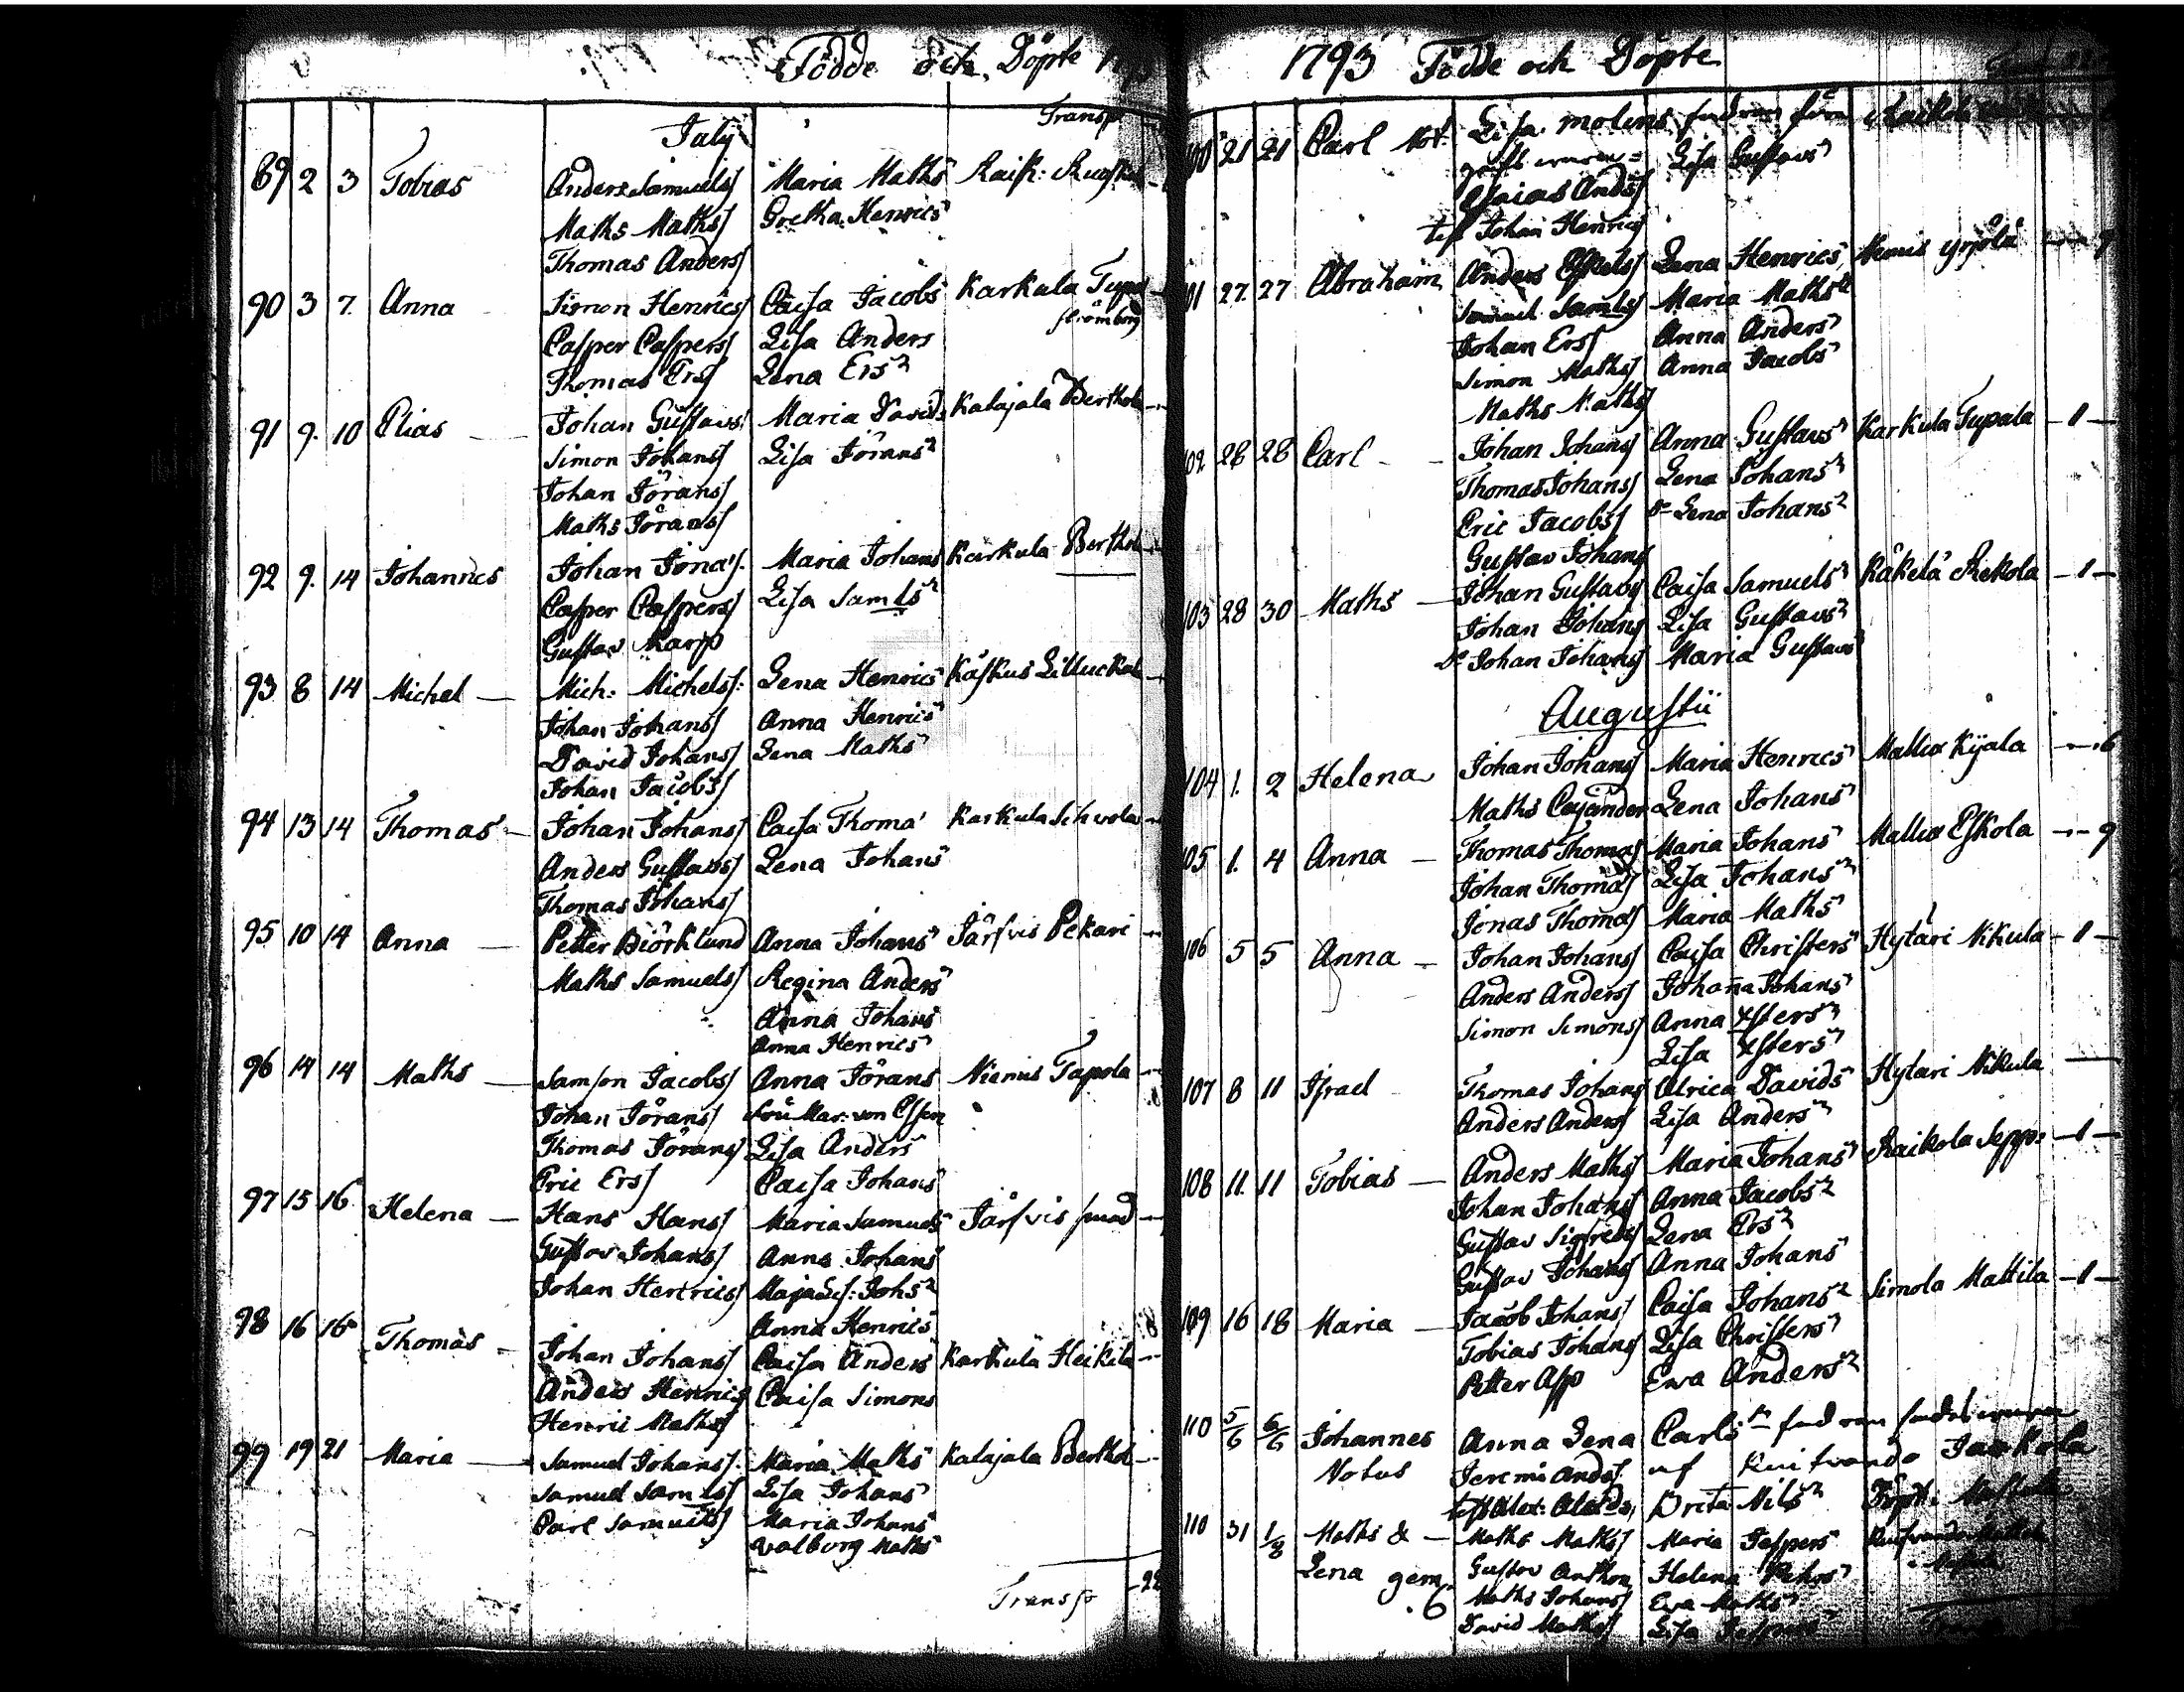 Födde och Döpte
Transp
July
89 2 3 Tobias Anders Samuels/ Maria Maths Raik:
Maths Maths/ Gretha Henrics
Thomas Anders/
90 3 7. Anna Simon Henrics/ Caisa Jacobs Karkula
Casper Caspers/ Lisa Anders
Thomas Ers/ Lena Ers
91 9. 10 Elias Johan Gustavs/ Maria Davids Kalajala Berthola
Simon Johans/ Lisa Jörans
Johan Jörans/
Maths Jörans/
92 9. 14 Johannes Johan Jona/. Maria Johans Karkula Berthola
Casper Caspers/ Lisa Samls
Gustav Karp
93 8 14 Michel Mich: Michels/: Lena Henrics Kåskus
Johan Johans/ Anna Henrics
David Johans/ Lena Maths
Johan Jacobs/
94 13 14 Thomas Johan Johans/ Caisa Thoma Karkula
Anders Gustavs/ Lena Johans
Thomas Johans/
95 10 14 Anna Petter Biörklund Anna Johans Järfvis Pekari
Maths Samuels/ Regina Anders
Anna Johans
Anna Henrics
96 14 14 Maths Samson Jacobs/ Anna Jörans Niemis Tapola
Johan Jörans/ fru Mar: von Essen
Thomas Jörans/ Lisa Anders
Eric Ers/ Caisa Johans
97 15 16 Helena Hans Hans/ Maria Samuels Järfvis
Gustav Johans/ Anna Johans
Johan Henrics/ Maja Johs
Anna Henrics
98 16 16 Thomas Johan Johans/ Caisa Anders Karkula Heikila
Anders Henrics/ Caisa Simons
Henric Maths/
99 19 21 Maria Samuel Johans/. Maria Maths Kalajala Berthol
Samuel Samls/ Lisa Johans
Carl Samuels/ Maria Johans
Walborg Maths
Transp
1793 Födde och Döpte
100 21 21 Carl Not: Lisa Molins
Lisa Gustavs
Esaias Ands/
test Johan Henrics/
101 27. 27 Abraham Anders Eskels/ Lena Henrics Niemis Yrjölä
Samuel Samls/ Maria Maths
Johan Ers/ Anna Anders
Simon Maths/ Anna Jacobs
Maths Maths/
102 28 28 Carl Johan Johans/ Anna Gustavs Karkula Tupala - 1 -
Thomas Johans/ Lena Johans
Eric Jacobs/ Do Lena Johans
Gustav Johans/
103 28 30 Maths Johan Gustavs/ Caisa Samuels Käkelä Rekola - 1 -
Johan Johans/ Lisa Gustavs
Do Johan Johans/ Maria Gustavs
Augustii
104 1. 2 Helena Johan Johans/ Maria Henrics Mallus Kijala 6
Maths Cajander Lena Johans
105 1. 4 Anna Thomas Thomas/ Maria Johans Mallus Eskola 9
Johan Thomas/ Lisa Johans
Jonas Thomas/ Maria Maths
106 5 5 Anna Johan Johans/ Caisa Christers Hytäri Nikula - 1 -
Anders Anders/ Johanna Johans
Simon Simons/ Anna Xsters
Lisa Xsters
107 8 11 Israel Thomas Johans/ Ulrica Davids Hytäri Nikula
Anders Anders/ Lisa Anders
108 11. 11 Tobias Anders Maths/ Maria Johans Raikola Sepp: - 1 -
Johan Johans/ Anna Jacobs
Gustav Sigfreds/ Lena Ers
Gustav Johans/ Anna Johans
109 16 18 Maria Jacob Johans/ Caisa Johans Simola Mattila - 1 -
Tobias Johans/ Lisa Christers
Petter Asp Ewa Anders
110 5/6 6/6 Johannes Anna Lena Carls
Notus Jeremi Ands/. af
Brita Nils
110 31 1/8 Maths & Maths Maths/ Maria Jaspers
Lena gem. Gustav Anthon Helena
6 Maths Johans/ Ewa Maths
David Maths/ Lisa